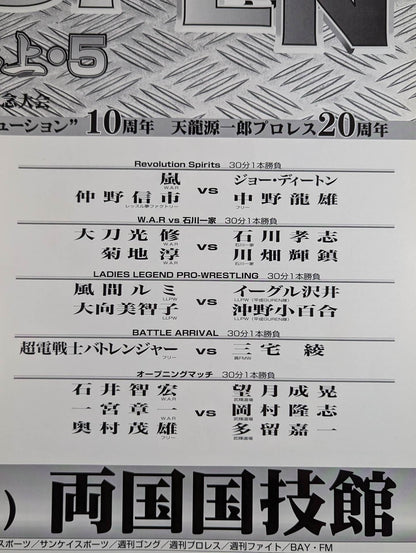 上・5
念大会
ューション” 10周年 天龍源一郎プロレス20周年
Revolution Spirits 30分1本勝負
嵐 W.A.R
仲野信市 レッスル夢ファクトリー
vs
ジョー・ディートン
中野龍雄 フリー
W.A.R vs 石川一家 30分1本勝負
大刀光修 W.A.R
菊地淳 W.A.R
vs
石川孝志 石川一家
川畑輝鎮 石川一家
LADIES LEGEND PRO-WRESTLING 30分1本勝負
風間ルミ LLPW
大向美智子 LLPW
vs
イーグル沢井 LLPW（平成GUREN隊）
沖野小百合 LLPW（平成GUREN隊）
BATTLE ARRIVAL 30分1本勝負
超電戦士バトレンジャー フリー
vs
三宅綾 真FMW
オープニングマッチ 30分1本勝負
石井智宏 W.A.R
一宮章一 W.A.R
奥村茂雄 フリー
vs
望月成晃 武輝道場
岡村隆志 武輝道場
多留嘉一 武輝道場
) 両国国技館
スポーツ／サンケイスポーツ／週刊ゴング／週刊プロレス／週刊ファイト／BAY・FM